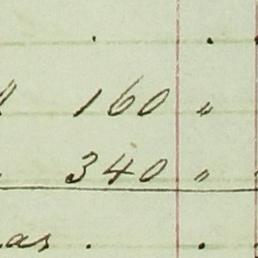 160 "
340 "
as .